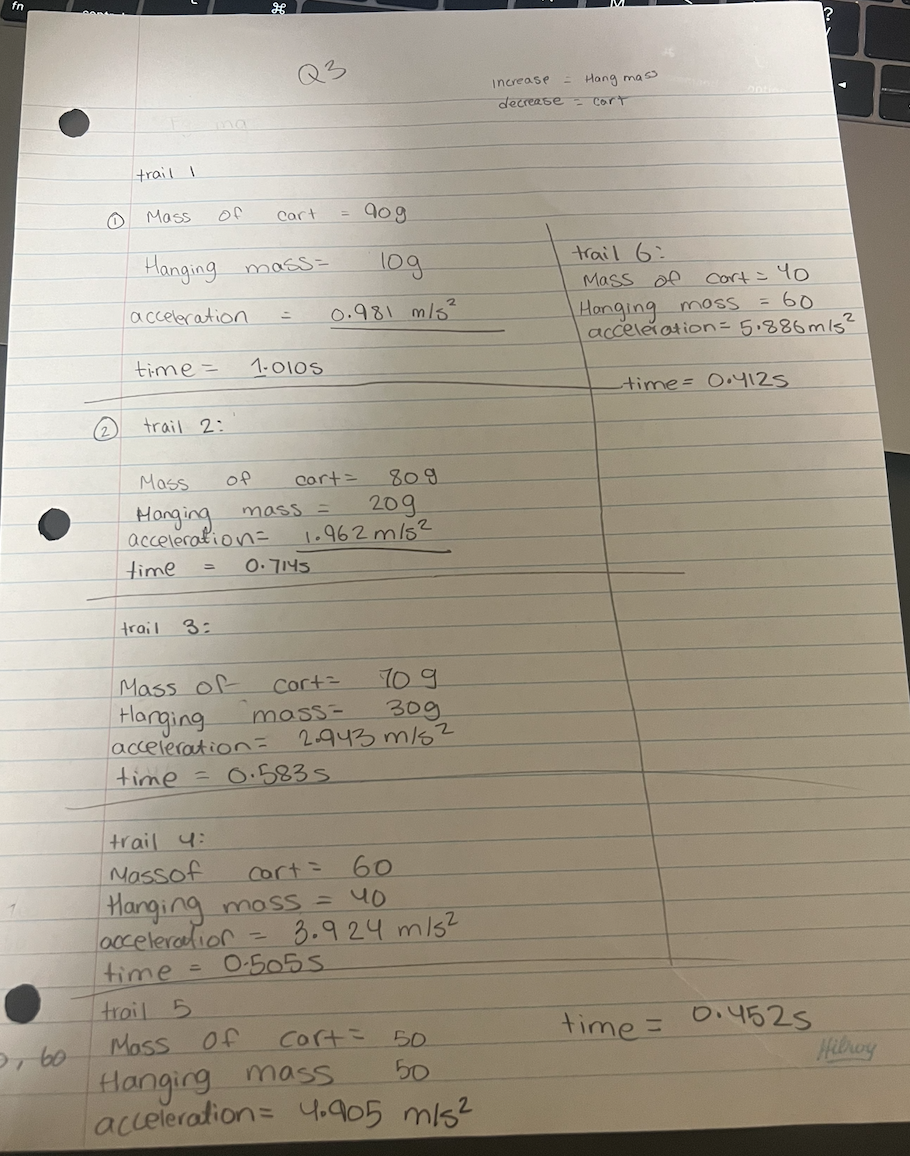 fn
⌘
M
?
Q3
increase = Hang mass
decrease = cart
trail 1
① Mass of cart = 90g
Hanging mass= 10g
acceleration = 0.981 m/s²
time = 1.010s
② trail 2:
Mass of cart= 80g
Hanging mass = 20g
acceleration= 1.962 m/s²
time = 0.714s
trail 3:
Mass of cart= 70g
Hanging mass= 30g
acceleration= 2.943 m/s²
time = 0.583s
trail 4:
Mass of cart= 60
Hanging mass = 40
acceleration = 3.924 m/s²
time = 0.505s
trail 5
Mass of cart= 50
Hanging mass 50
acceleration= 4.905 m/s²
time = 0.452s
trail 6:
Mass of cart= 40
Hanging mass = 60
acceleration= 5.886m/s²
time= 0.412s
, 60
Hilroy